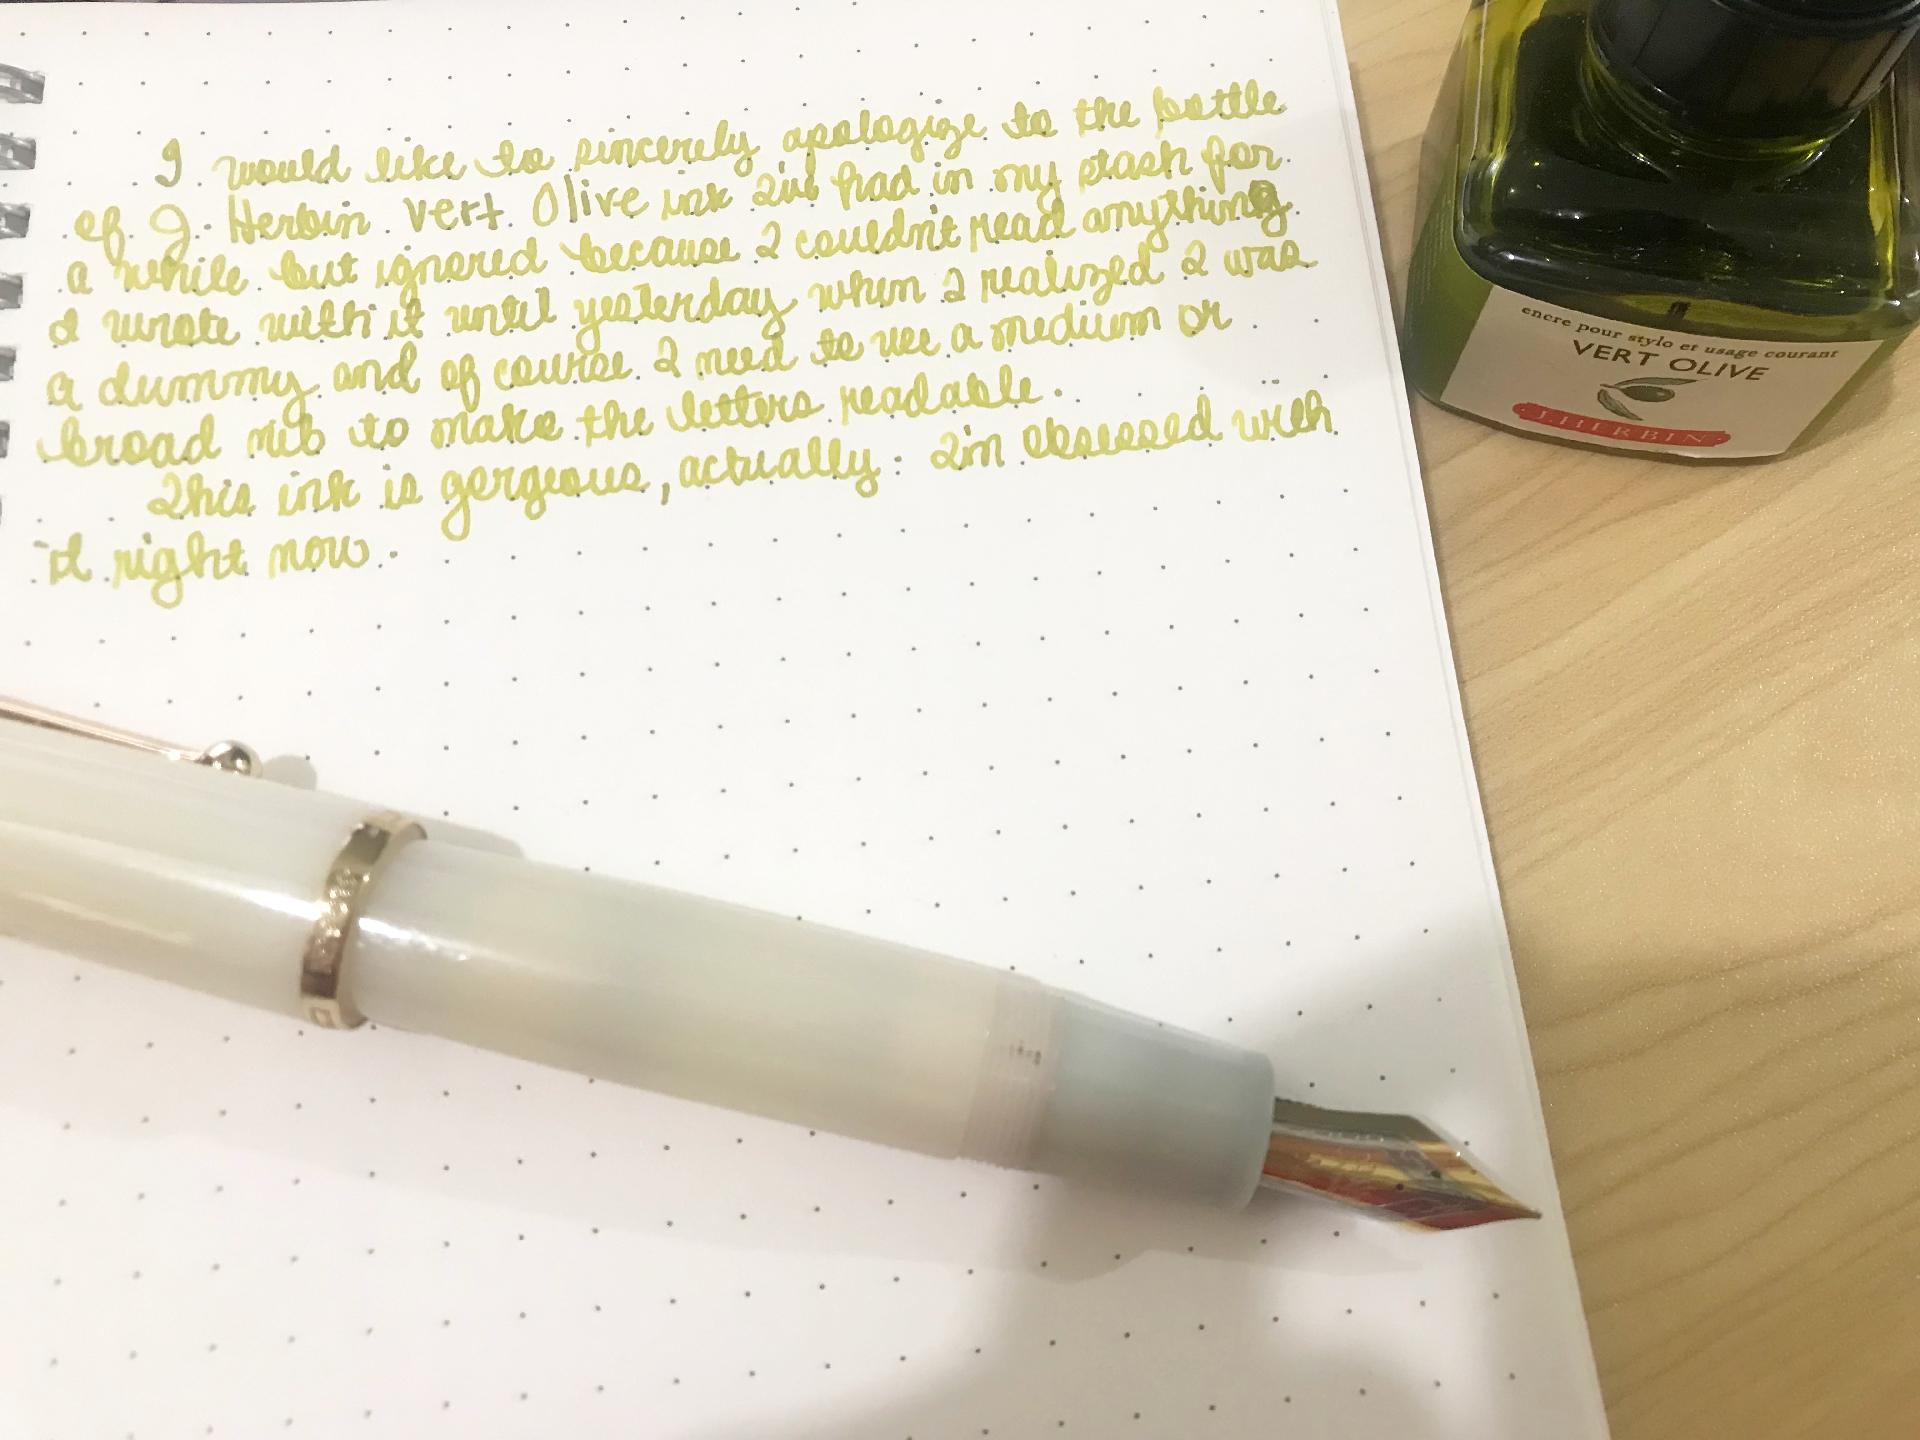 I would like to sincerely apologize to the bottle
of J. Herbin Vert Olive ink I've had in my stash for
a while but ignored because I couldn't read anything
I wrote with it until yesterday when I realized I was
a dummy and of course I need to use a medium or
broad nib to make the letters readable.
This ink is gorgeous, actually. I'm obsessed with
it right now.
encre pour stylo et usage courant
VERT OLIVE
J.HERBIN